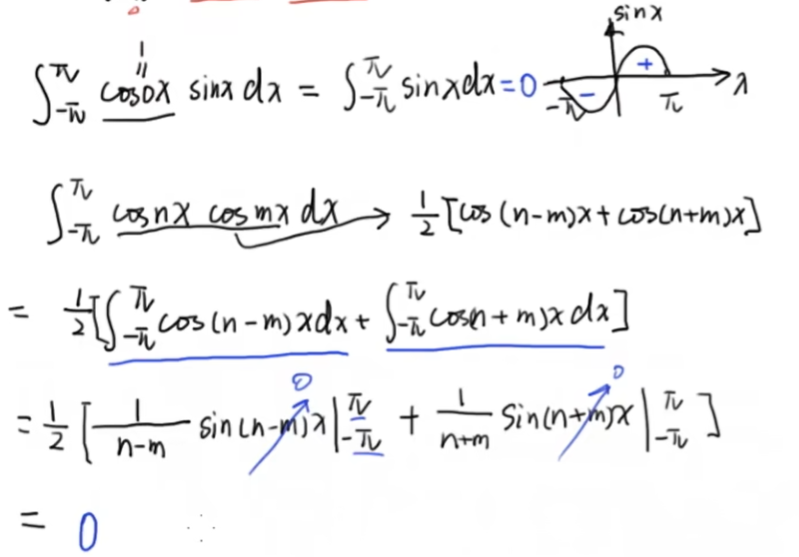 1
=
∫_{-π}^{π} cos0x sinx dx = ∫_{-π}^{π} sinx dx = 0
sinx
+
-
-π π x
∫_{-π}^{π} cosnx cosmx dx → 1/2 [cos(n-m)x + cos(n+m)x]
= 1/2 [∫_{-π}^{π} cos(n-m)x dx + ∫_{-π}^{π} cos(n+m)x dx]
0 0
= 1/2 [1/(n-m) sin(n-m)x |_{-π}^{π} + 1/(n+m) sin(n+m)x |_{-π}^{π}]
= 0